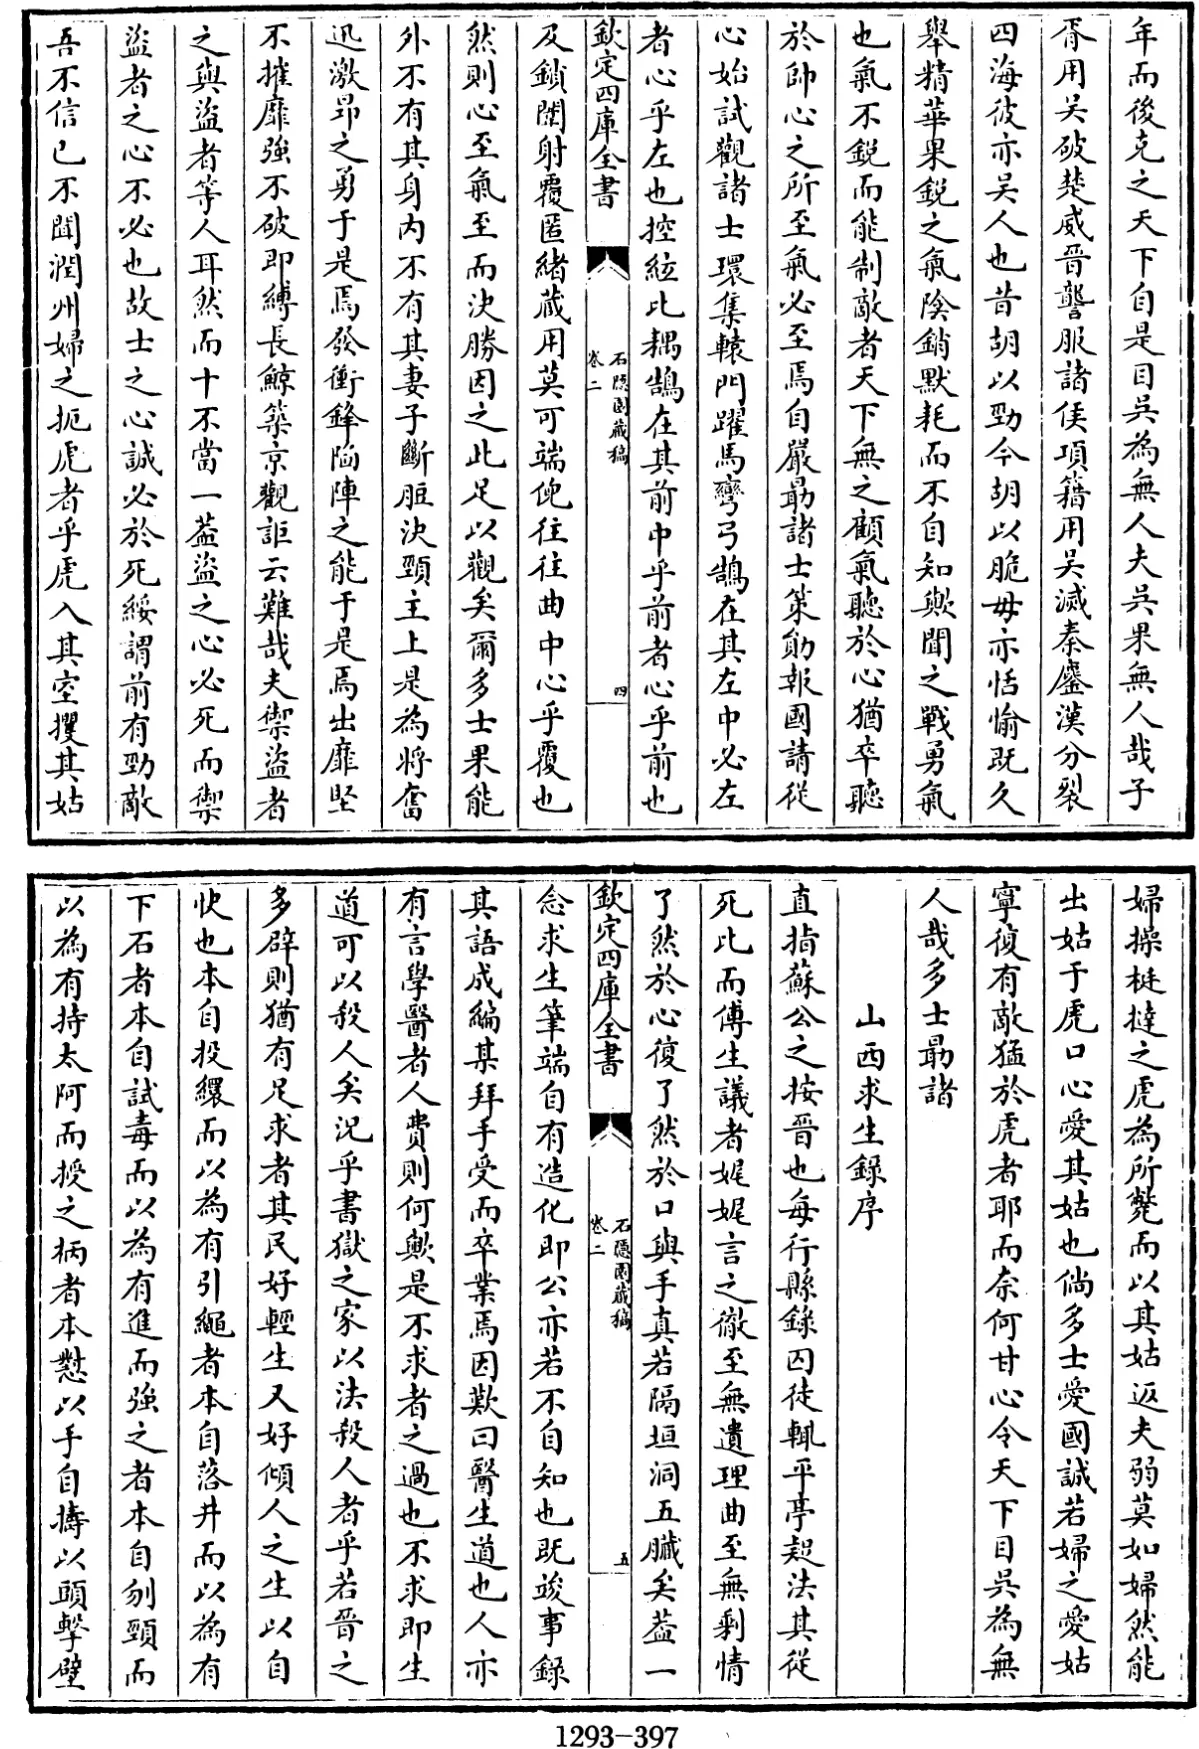 年而後克之天下自是目吳為無人夫吳果無人哉子
胥用吳破楚威晉讋服諸侯項籍用吳滅秦鏖漢分裂
四海彼亦吳人也昔胡以勁今胡以脆毋亦恬愉既久
舉精華果鋭之氣陰銷默耗而不自知歟聞之戰勇氣
也氣不鋭而能制敵者天下無之顧氣聽於心猶卒聽
於帥心之所至氣必至焉自嚴勗諸士策勛報國請從
心始試觀諸士環集轅門躍馬彎弓鵠在其左中必左
者心乎左也控絃比耦鵠在其前中乎前者心乎前也
欽定四庫全書
石隱園藏稿
卷二
四
及鎖闈射覆匿緒蔵用莫可端倪往往曲中心乎覆也
然則心至氣至而決勝因之此足以觀矣爾多士果能
外不有其身内不有其妻子斷脰決頸主上是為將奮
迅激昻之勇于是焉發衝鋒陷陣之能于是焉出靡堅
不摧靡強不破即縛長鯨築京觀詎云難哉夫禦盜者
之與盜者等人耳然而十不當一葢盜之心必死而禦
盜者之心不必也故士之心誠必於死綏謂前有勁敵
吾不信已不聞潤州婦之扼虎者乎虎入其室攫其姑
婦操梃撻之虎為所斃而以其姑返夫弱莫如婦然能
出姑于虎口心愛其姑也倘多士愛國誠若婦之愛姑
寧復有敵猛於虎者耶而奈何甘心令天下目吳為無
人哉多士勗諸
山西求生錄序
直指蘇公之按晉也每行縣錄囚徒輒平亭起法其從
死比而傅生議者娓娓言之徹至無遺理曲至無剩情
了然於心復了然於口與手真若隔垣洞五臟矣葢一
欽定四庫全書
石隱園藏稿
卷二
五
念求生筆端自有造化即公亦若不自知也既竣事錄
其語成編某拜手受而卒業焉因歎曰醫生道也人亦
有言學醫者人費則何歟是不求者之過也不求即生
道可以殺人矣況乎書獄之家以法殺人者乎若晉之
多辟則猶有足求者其民好輕生又好傾人之生以自
快也本自投繯而以為有引繩者本自落井而以為有
下石者本自試毒而以為有進而強之者本自刎頸而
以為有持太阿而授之柄者本懟以手自擣以頭擊壁
1293-397